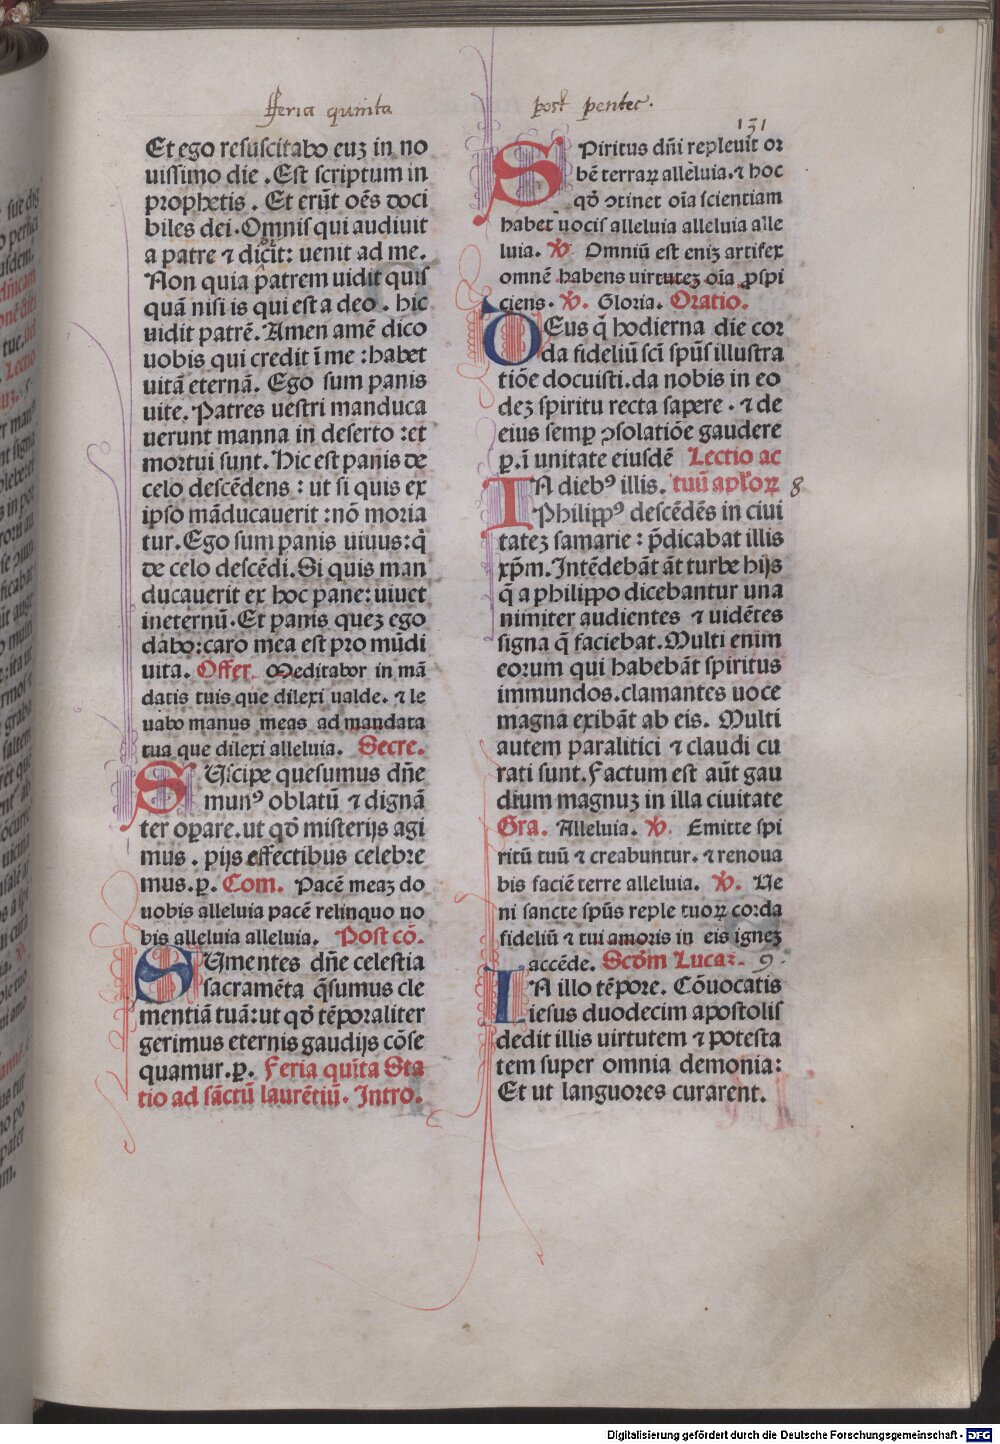 fferia quinta post pentec.
131
Et ego resuscitabo euꝫ in no
uissimo die. Est scriptum in
prophetis. Et erūt oēs doci
biles dei. Omnis qui audiuit
a patre ⁊ dicit: uenit ad me.
Non quia patrem uidit quis
quā nisi is qui est a deo. hic
uidit patrē. Amen amē dico
uobis qui credit ī me: habet
uitā eternā. Ego sum panis
uite. Patres uestri manduca
uerunt manna in deserto: et
mortui sunt. Hic est panis de
celo descēdens: ut si quis ex
ipso māducauerit: nō moria
tur. Ego sum panis uiuus: q̄
de celo descēdi. Si quis man
ducauerit ex hoc pane: uiuet
ineternū. Et panis queꝫ ego
dabo: caro mea est pro mūdi
uita. Offer. Meditabor in mā
datis tuis que dilexi ualde. ⁊ le
uabo manus meas ad mandata
tua que dilexi alleluia. Secre.
SUscipe quesumus dn̄e
munꝰ oblatū ⁊ dignā
ter oꝑare. ut qd̄ misterijs agi
mus. pijs effectibus celebre
mus. ꝑ. Com. Pacē meaꝫ do
uobis alleluia pacē relinquo uo
bis alleluia alleluia. Post cō.
SUmentes dn̄e celestia
sacramēta q̄sumus cle
mentiā tuā: ut qd̄ tēporaliter
gerimus eternis gaudijs cōse
quamur. ꝑ. Feria quīta Sta
tio ad sāctū laurētiū. Intro.
SPiritus dn̄i repleuit or
bē terraꝝ alleluia. ⁊ hoc
qd̄ ꝯtinet oīa scientiam
habet uocis alleluia alleluia alle
luia. ℣. Omniū est eniꝫ artifex
omnē habens uirtuteꝫ oīa ꝓspi
ciens. ℣. Gloria. Oratio.
DEus q̄ hodierna die cor
da fideliū sc̄i sp̄us illustra
tiōe docuisti. da nobis in eo
deꝫ spiritu recta sapere. ⁊ de
eius semꝑ ꝯsolatiōe gaudere
ꝑ. ī unitate eiusdē Lectio ac
IN diebꝰ illis. tuū apl'oꝝ 8
Philippꝰ descēdēs in ciui
tateꝫ samarie: p̄dicabat illis
xp̄m. Intēdebāt āt turbe hijs
q̄ a philippo dicebantur una
nimiter audientes ⁊ uidētes
signa q̄ faciebat. Multi enim
eorum qui habebāt spiritus
immundos. clamantes uoce
magna exibāt ab eis. Multi
autem paralitici ⁊ claudi cu
rati sunt. Factum est aūt gau
dium magnuꝫ in illa ciuitate
Gra. Alleluia. ℣. Emitte spi
ritū tuū ⁊ creabuntur. ⁊ renoua
bis faciē terre alleluia. ℣. Ue
ni sancte sp̄us reple tuoꝝ corda
fideliū ⁊ tui amoris in eis igneꝫ
accēde. Scd̄m Lucaꝫ. 9.
IN illo tēpore. Cōuocatis
iesus duodecim apostolis
dedit illis uirtutem ⁊ potesta
tem super omnia demonia:
Et ut languores curarent.
Digitalisierung gefördert durch die Deutsche Forschungsgemeinschaft - DFG